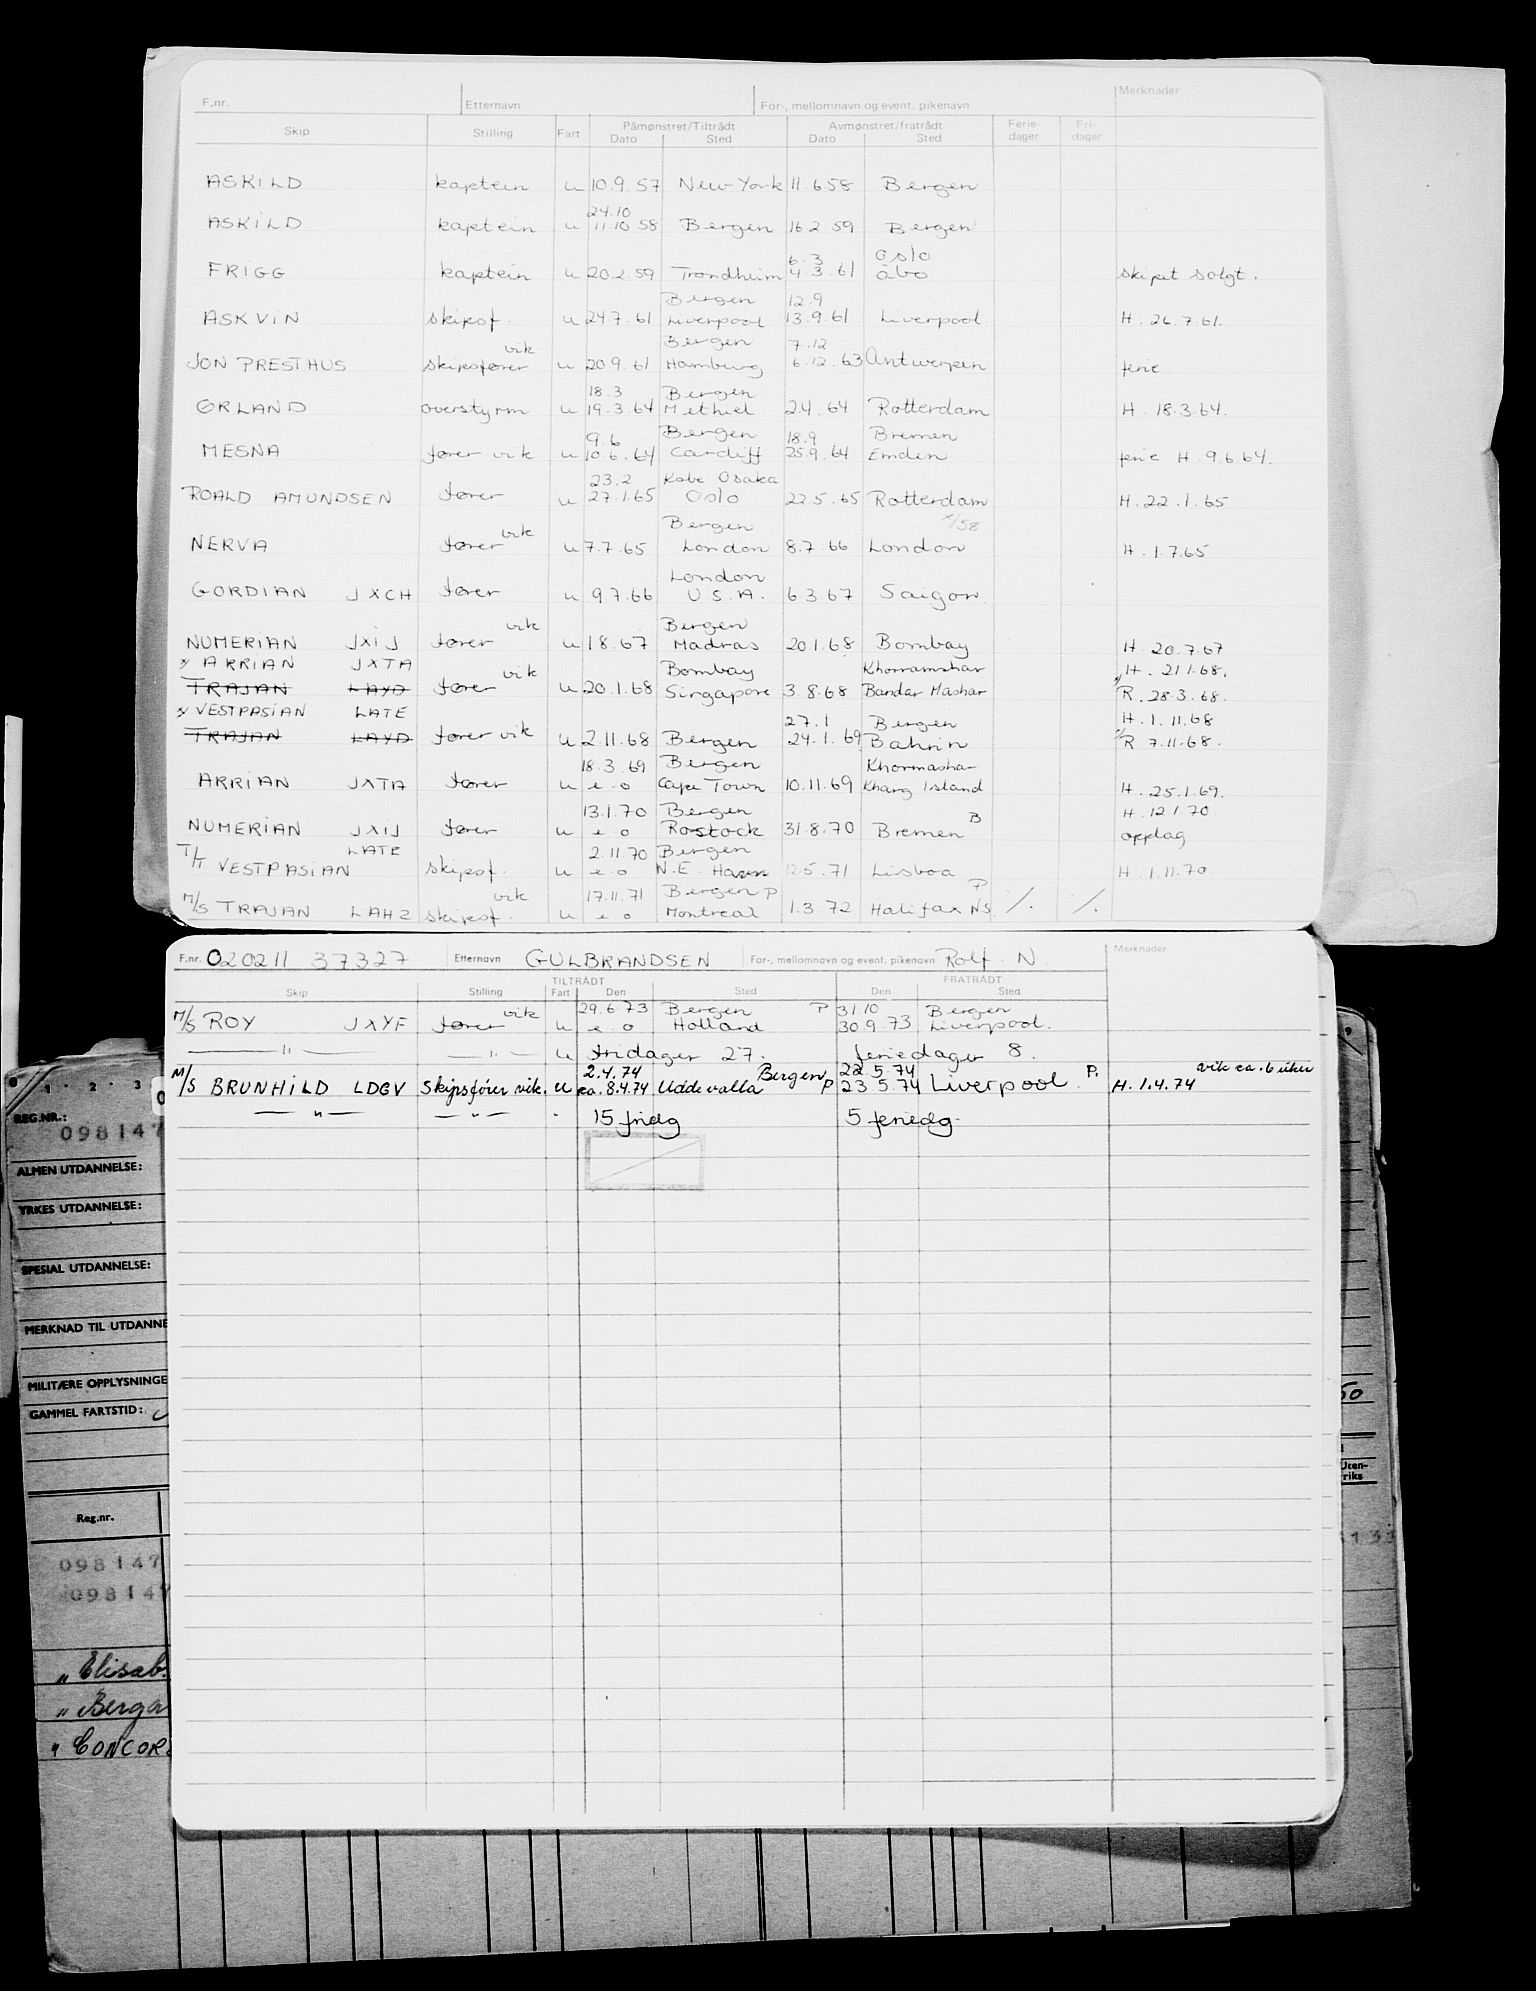 F.nr. Etternavn For-, mellomnavn og event. pikenavn Merknader
Skip Stilling Fart Påmønstret/Tiltrådt Avmønstret/fratrådt Ferie- Fri-
Dato Sted Dato Sted dager dager
ASKILD kaptein u 10.9.57 New York 11.6.58 Bergen
24.10
ASKILD kaptein u 11.10.58 Bergen 16.2.59 Bergen
6.3 Oslo
FRIGG kaptein u 20.2.59 Trondheim 4.3.61 åbo skipet solgt.
Bergen 12.9
ASKVIN skipsf. u 24.7.61 Liverpool 13.9.61 Liverpool H. 26.7.61.
vik Bergen 7.12
JON PRESTHUS skipsfører u 20.9.61 Hamburg 6.12.63 Antwerpen ferie
18.3 Bergen
ØRLAND overstyrm u 19.3.64 Methiel 2.4.64 Rotterdam H. 18.3.64.
9.6 Bergen 18.9 Bremen
MESNA fører vik u 10.6.64 Cardiff 25.9.64 Emden ferie H. 9.6.64.
23.2 Kobe Osaka
ROALD AMUNDSEN fører u 27.1.65 Oslo 22.5.65 Rotterdam H. 22.1.65
vik Bergen
NERVA fører u 7.7.65 London 8.7.66 London H. 1.7.65
London
GORDIAN JXCH fører u 9.7.66 U.S.A. 6.3.67 Saigon
vik Bergen
NUMERIAN JXIJ fører u 1.8.67 Madras 20.1.68 Bombay H. 20.7.67
ARRIAN JXTA vik Bombay Khorramshar H. 21.1.68.
TRAJAN LAYD fører u 20.1.68 Singapore 3.8.68 Bandar Mashar R. 28.3.68.
VESPASIAN LATE 27.1 Bergen H. 1.11.68
TRAJAN LAYD fører vik u 2.11.68 Bergen 24.1.69 Bahrin R 7.11.68.
18.3.69 Bergen Khormashar
ARRIAN JXTA fører u e.o Cape Town 10.11.69 Kharg Island H. 25.1.69.
13.1.70 Bergen B H. 12.1.70
NUMERIAN JXIJ fører u e.o Rostock 31.8.70 Bremen opplag
T/T LATE 2.11.70 Bergen
VESTPASIAN skipsf. u e.o N.E. 12.5.71 Lisboa H. 1.11.70
vik 17.11.71 Bergen P P
M/S TRAJAN LAHZ skipsf. u e.o Montreal 1.3.72 Halifax NS /. /.
F.nr. 020211 37327 Etternavn GULBRANDSEN For-, mellomnavn og event. pikenavn Rolf N. Merknader
TILTRÅDT FRATRÅDT
Skip Stilling Fart Den Sted Den Sted
vik 29.6.73 Bergen P 31.10 Bergen
M/S ROY JXYF fører u e.o Holland 30.9.73 Liverpool.
— " — — " — u fridager 27. feriedager 8.
2.4.74 Bergen 22.5.74 P. vik ca. 6 uker
M/S BRUNHILD LDGV Skipsfører vik. u ca. 8.4.74 Uddevalla P 23.5.74 Liverpool. H. 1.4.74
— " — — " — 15 fridg 5 feriedg.
1 2 3
REG.NR.:
098147
ALMEN UTDANNELSE:
YRKES UTDANNELSE:
SPESIAL UTDANNELSE:
MERKNAD TIL UTDANNE
MILITÆRE OPPLYSNINGE
GAMMEL FARTSTID:
50
Uten-
riks
Reg.nr.
098147
098147
„ Elisab.
„ Berga
„ CONCOR